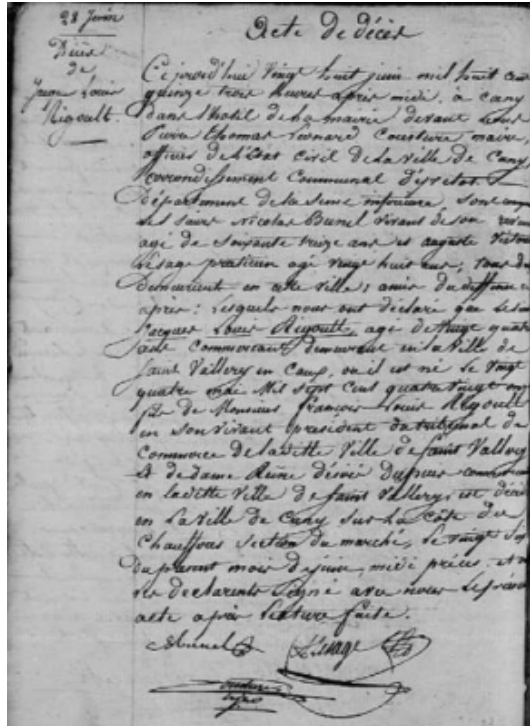 28 Juin
Décès
de
Jean Louis
Rigoult.
Acte de décès
Ce jourd'hui vingt huit juin mil huit cent
quinze trois heures après midi, à cany
dans l'hotel de la mairie devant nous
Pierre thomas Leonard Couture maire,
officier de l'Etat civil de la ville de Cany
arrondissement Communal d'yvetot
Département de la Seine inférieure, sont
les sieurs Nicolas Bunel vivant de son revenu
agé de soixante treize ans et auguste victor
Lesage praticien agé vingt huit ans, tous deux
demeurent en cette ville; amis du deffunt ci
après: Lesquels nous ont déclaré que
Jacques Louis Rigoult, agé de vingt quatre
ans commercant demeurant en la ville de
Saint Vallery en Caux, ou il est né le vingt
quatre mai mil sept cent quatre vingt onze
fils de Monsieur françois Louis Rigoult
en son vivant président du tribunal de
Commerce de laditte ville de Saint Vallery
et de dame Reine désirée Dupuis
en laditte ville de Saint Vallery, est décédé
en la ville de Cany sur la côte des
Chauffours section du marché, le vingt
du present mois de juin, midi précis, et
les declarents signé avec nous le présent
acte après lecture faite.
Bunel Lesage